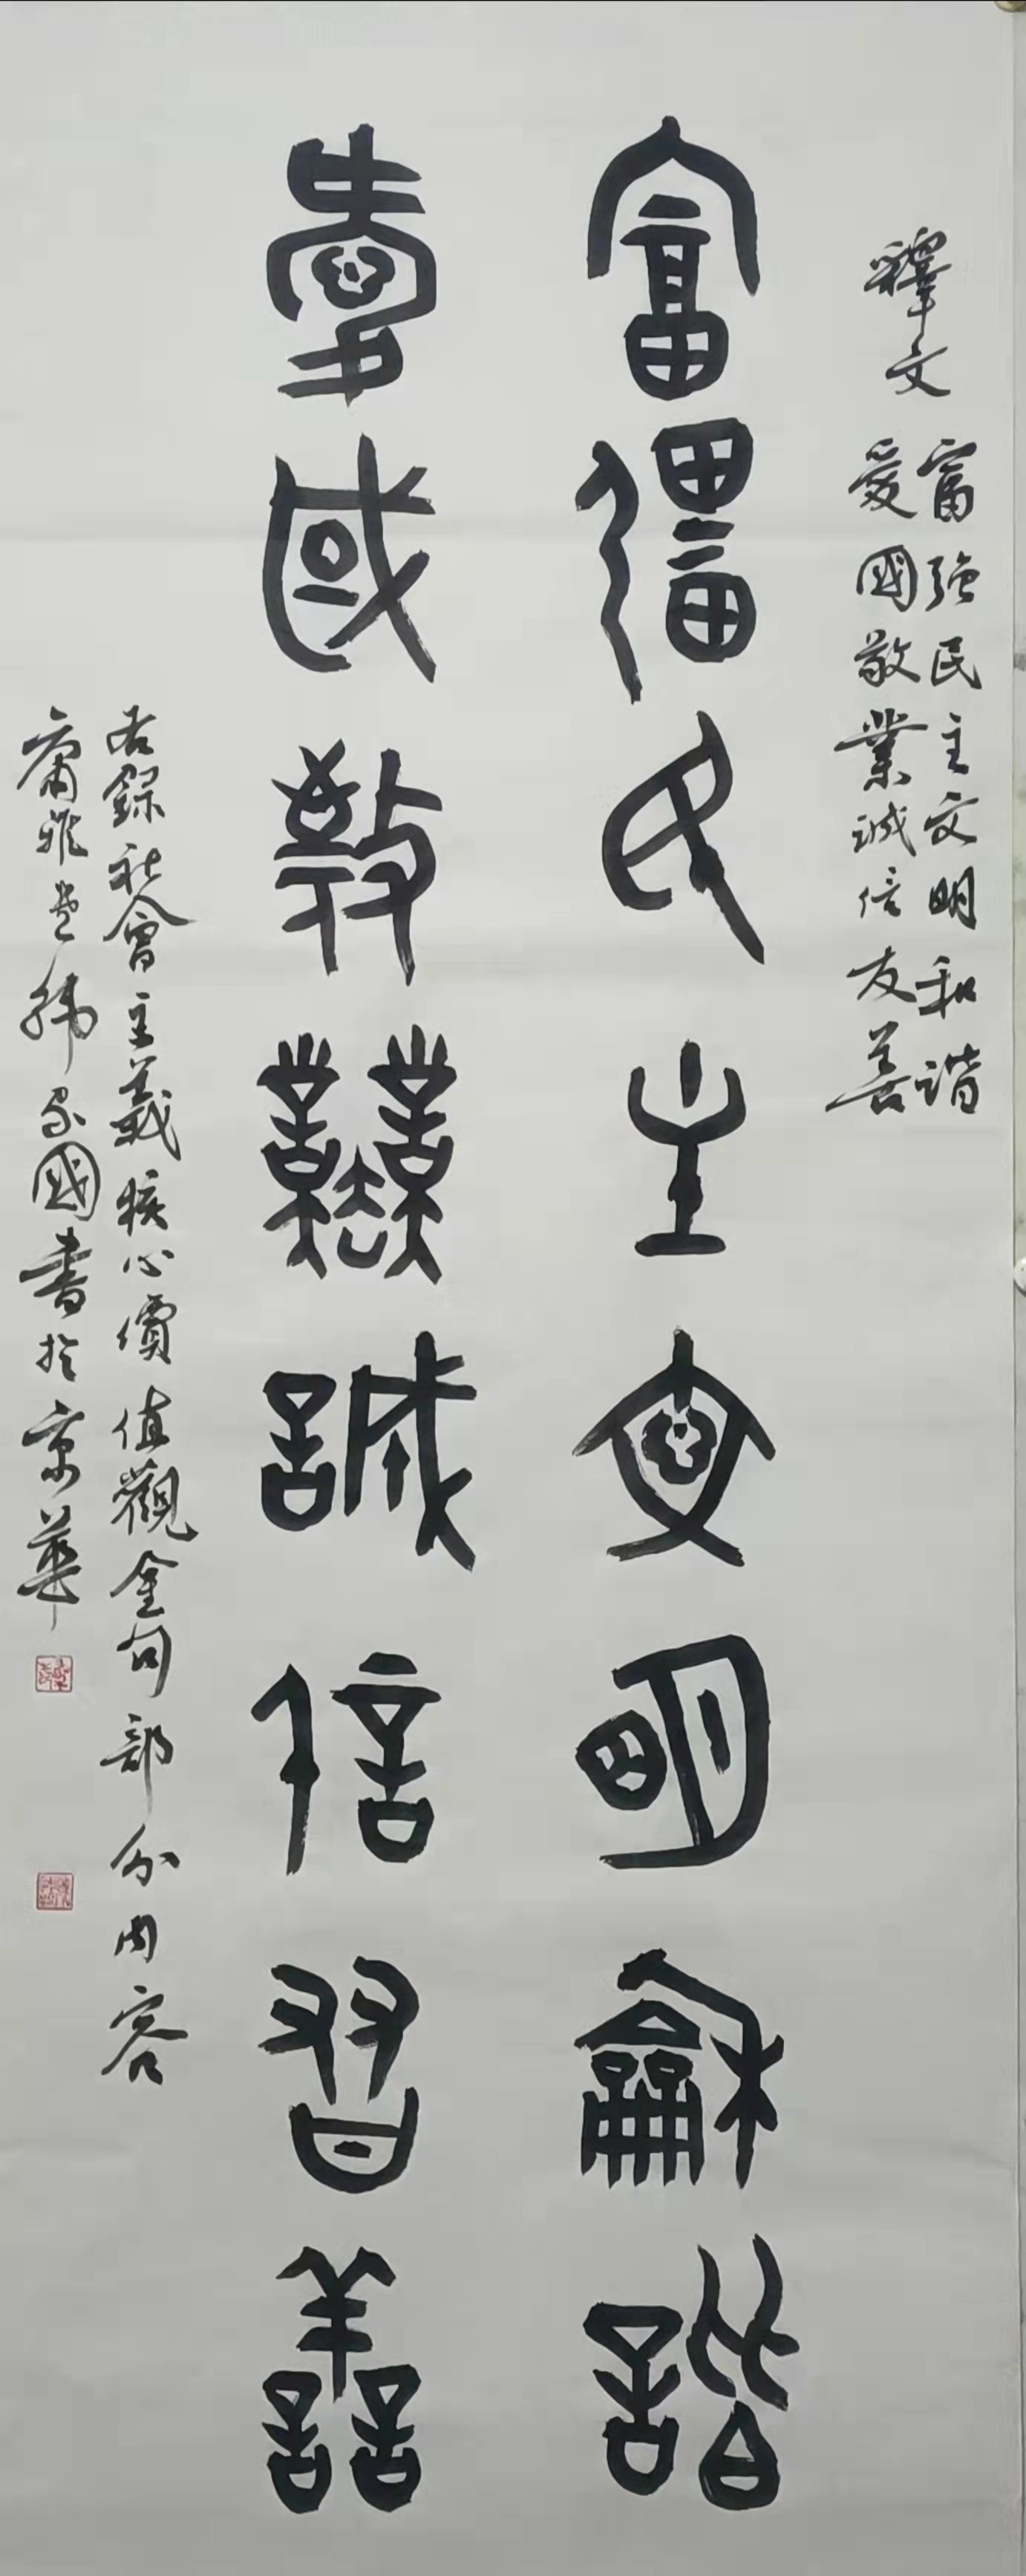 釋文
富强民主文明和諧
愛國敬業誠信友善
富彊民主文明龢諧
愛國敬業誠信友善
右錄社會主義核心價值觀金句部分内容
肅雅堂韩家國書於京華